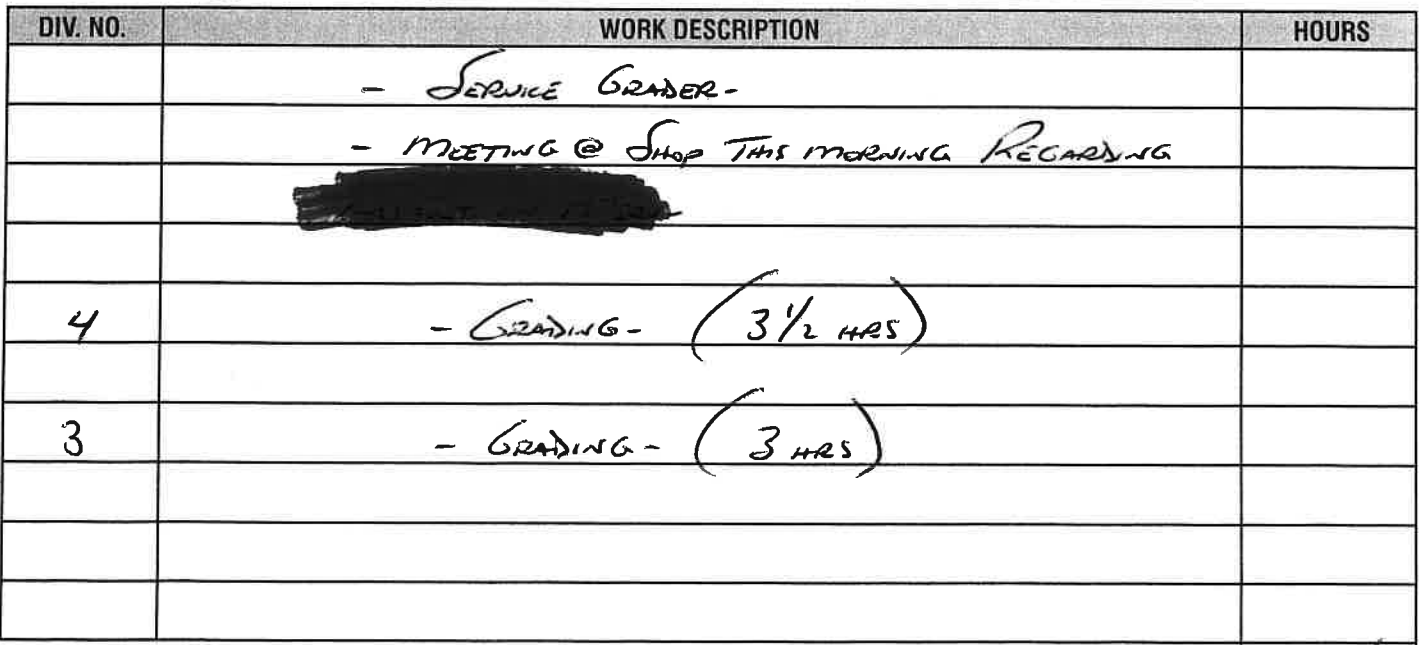 DIV. NO. WORK DESCRIPTION HOURS
- SERVICE GRADER -
- MEETING @ SHOP THIS MORNING REGARDING
4 - GRADING - (3 1/2 HRS)
3 - GRADING - (3 HRS)